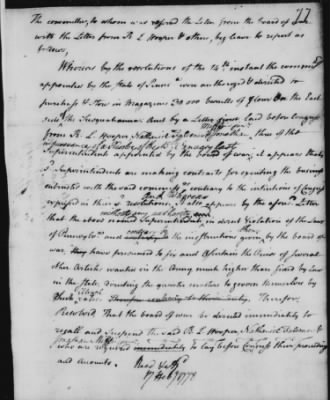 77
The committee, to whom was refered the Letter from the board of War
with the Letter from R. L. Hooper & others, beg leave to report as
follows,
Whereas by the resolutions of the 14th instant the commissrs
appointed by the State of Penna were authorized & directed to
purchase & Stow in Magazines 30 000 barrells of flour on the East
side the Susquehannah And by a Letter since laid before Congress
from R. L. Hooper Nathaniel &
Superintendents appointed by the board of war, it appears that
sd Superintendents are making contracts for executing the business
entrusted with the said commissrs contrary to the intentions of Congress
expressed in their sd resolutions. And it also appears by the aforesd Letter
that the above named Superintendants in direct Violation of the Laws
of Pennsylva and the instructions given by the board of
war, they have presumed to fix and ascertain the Prices of several
other Articles wanted in the Army much higher than fixed by Law
in the State, directing the quarter masters to govern themselves by
such rates Therefore,
Resolved That the board of war be directed immediately to
recall and suspend the said R L Hooper, Nathaniel
who are required immediately to lay before Congress their proceedings
and accounts.
Read
Feby 1778